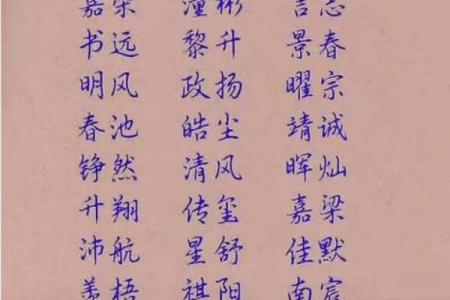 嘉荣 潼彬 言志
书远 黎升 景春
明风 政扬 曜宗
春池 皓尘 靖诚
铮然 清风 晖灿
升翔 传玺 嘉梁
沛航 星舒 佳默
善梧 祺阳 南宸